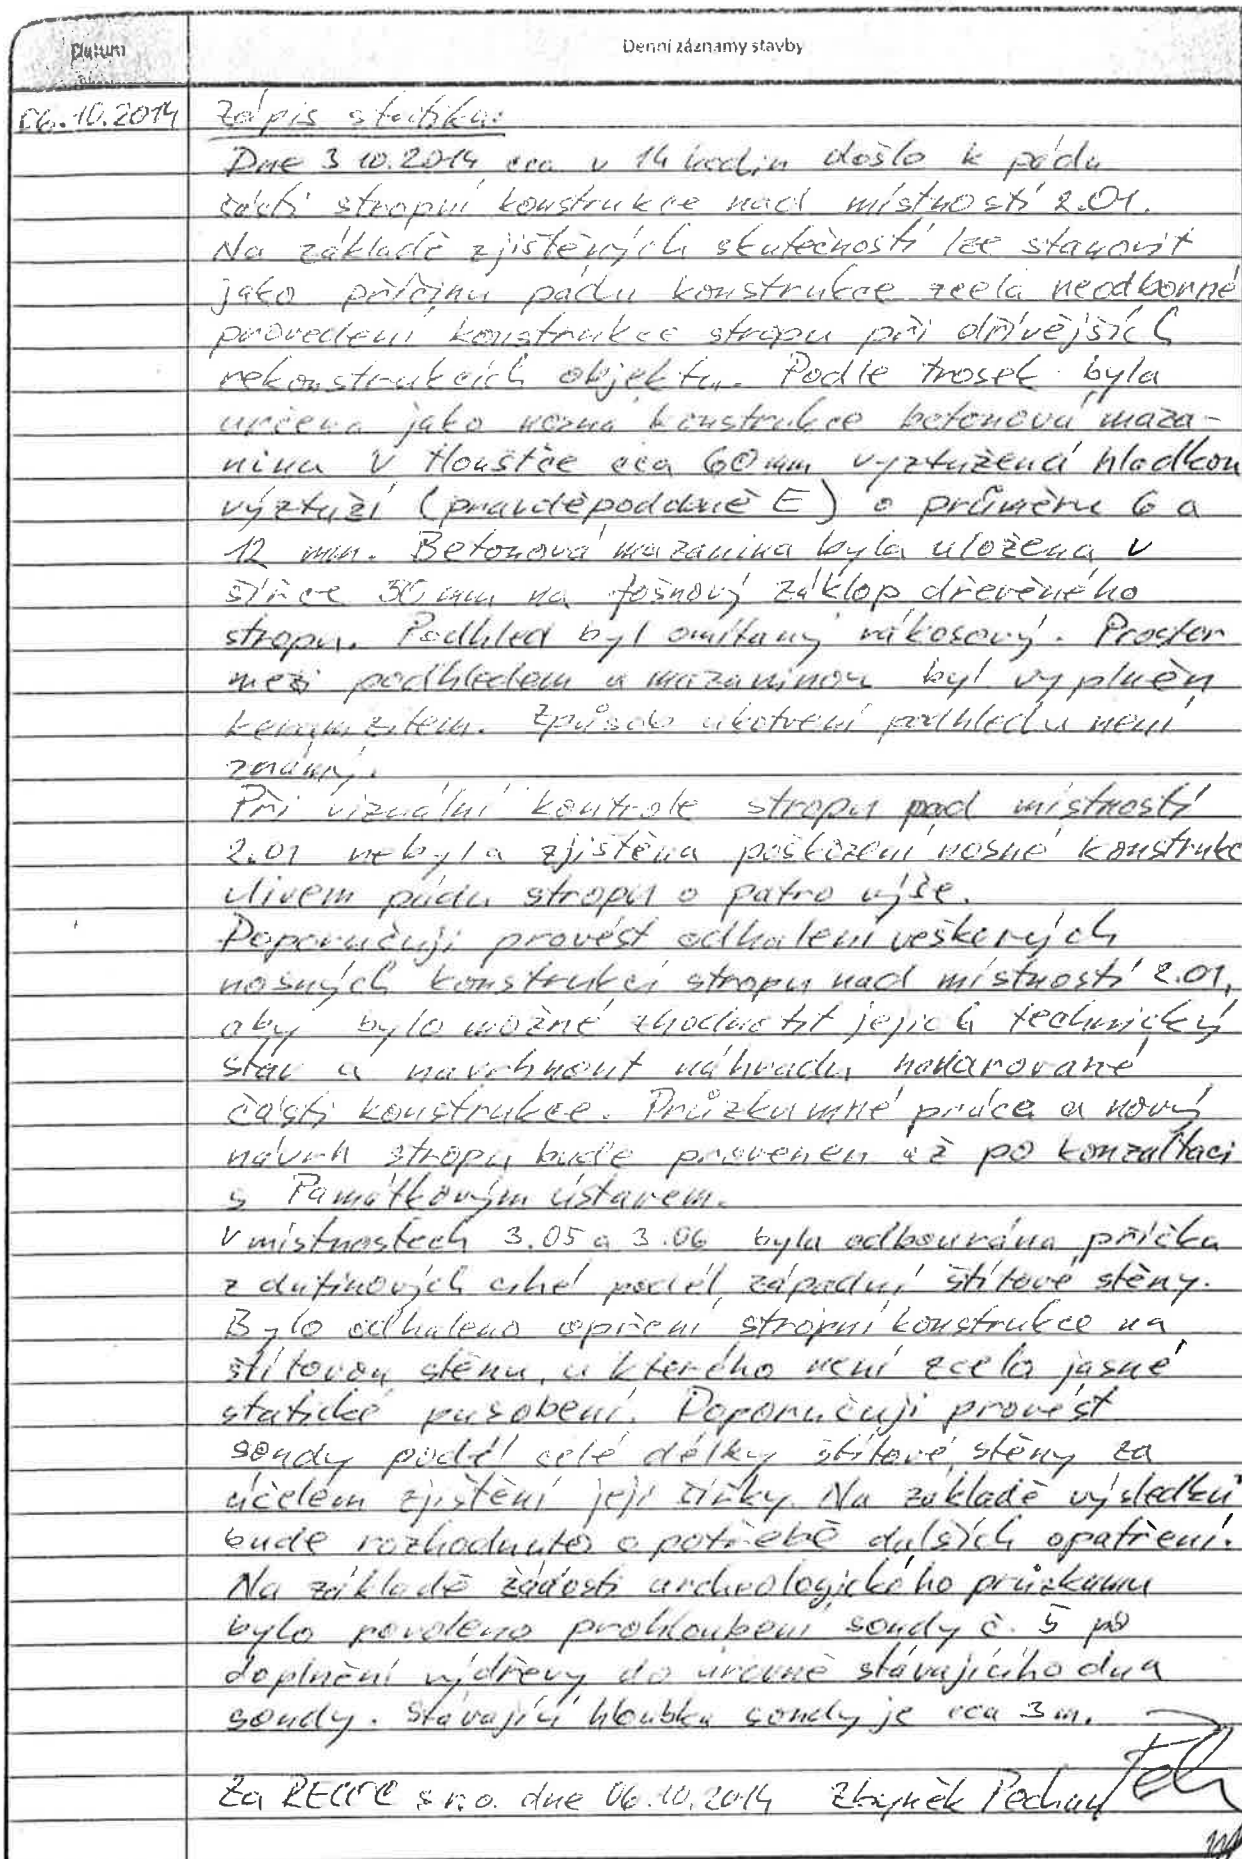 Datum
Denní záznamy stavby
06.10.2014 Zápis statika:
Dne 3 10.2014 cca v 14 hodin došlo k pádu
části stropní konstrukce nad místností 2.01.
Na základě zjištěných skutečností lze stanovit
jako příčinu pádu konstrukce zcela neodborné
provedení konstrukce stropu při dřívějších
rekonstrukcích objektu. Podle trosek byla
určena jako nosná konstrukce betonová maza-
ninu v tloušťce cca 60 mm vyztužená hladkou
výztuží (pravděpodobně E) o průměru 6 a
12 mm. Betonová mazanina byla uložena v
šířce 30 mm na fošnový záklop dřevěného
stropu. Podhled byl omítaný rákosový. Prostor
mezi podhledem a mazaninou byl vyplněn
keramzitem. Způsob ukotvení podhledu není
známý.
Při vizuální kontrole stropu pod místností
2.01 nebyla zjištěna poškození nosné konstrukc
vlivem pádu stropu o patro výše.
Doporučuji provést odhalení veškerých
nosných konstrukcí stropu nad místností 2.01,
aby bylo možné zhodnotit jejich technický
stav a navrhnout náhradu havarované
části konstrukce. Průzkumné práce a nový
návrh stropu bude provenen až po konzultaci
s Památkovým ústavem.
V místnostech 3.05 a 3.06 byla odbourána příčka
z dutinových cihel podél západní štítové stěny.
Bylo odhaleno opření stropní konstrukce na
štítovou stěnu, u kterého není zcela jasné
statické pusobení. Doporučuji provést
sondy podél celé délky štítové stěny za
účelem zjištění její šířky. Na základě výsledků
bude rozhodnuto o potřebě dalších opatření.
Na základě žádosti archeologického průzkumu
bylo povoleno prohloubení sondy č. 5 po
doplnění výdřevy do úrovně stávajícího dna
sondy. Stávající hloubka sondy je cca 3 m.
Za s r.o. dne 06.10.2014 Zbyněk